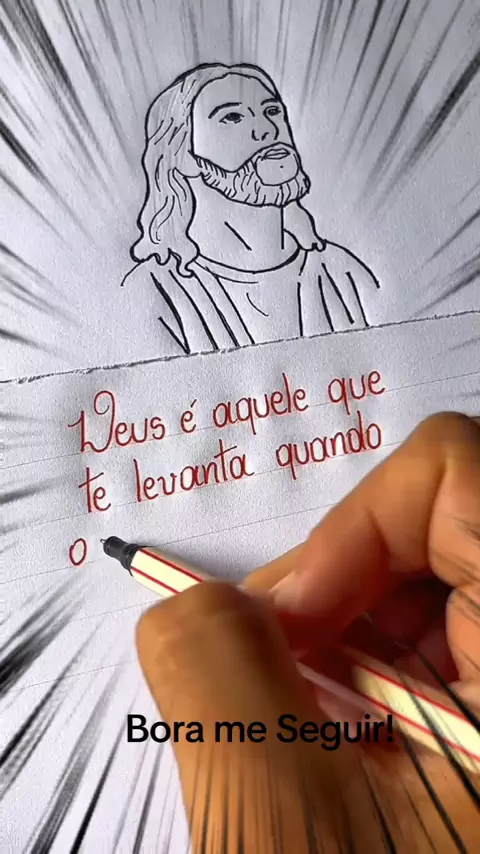 Deus é aquele que
te levanta quando
o
Bora me Seguir!